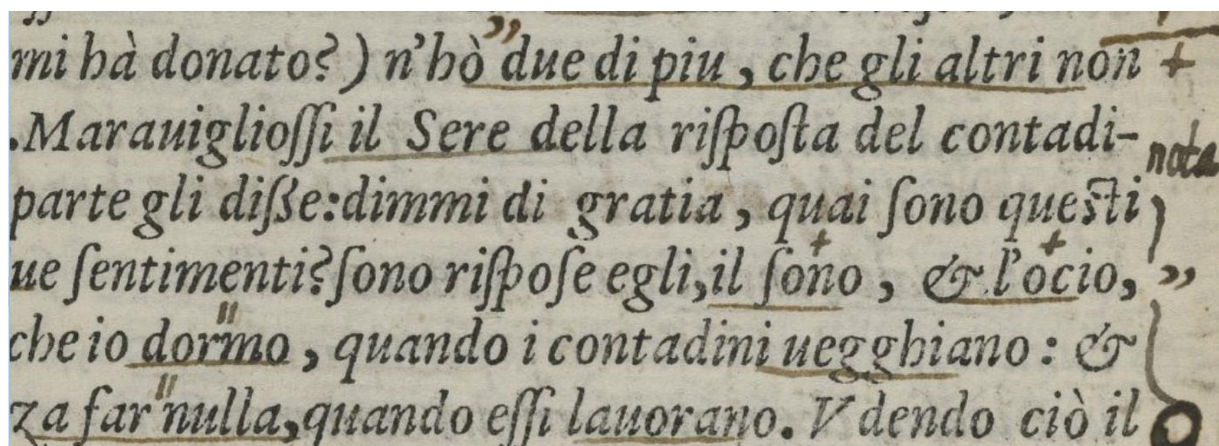 mi hà donato?) n'hò due di piu, che gli altri non +
.Marauigliossi il Sere della risposta del contadi-
nota
parte gli disse:dimmi di gratia, quai sono questi
ue sentimenti?sono rispose egli,il sono, & l'ocio,
che io dormo, quando i contadini uegghiano: &
za far nulla,quando essi lauorano. Vdendo ciò il